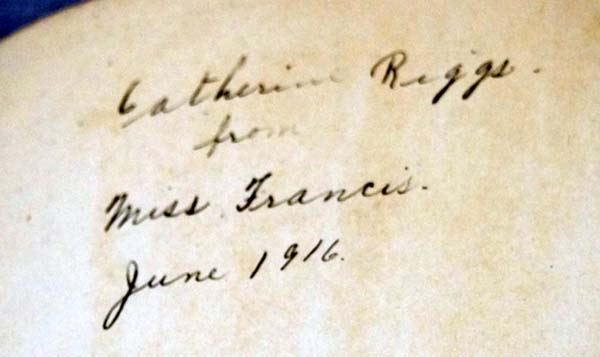 Catherine Riggs.
from
Miss Francis.
June 1916.